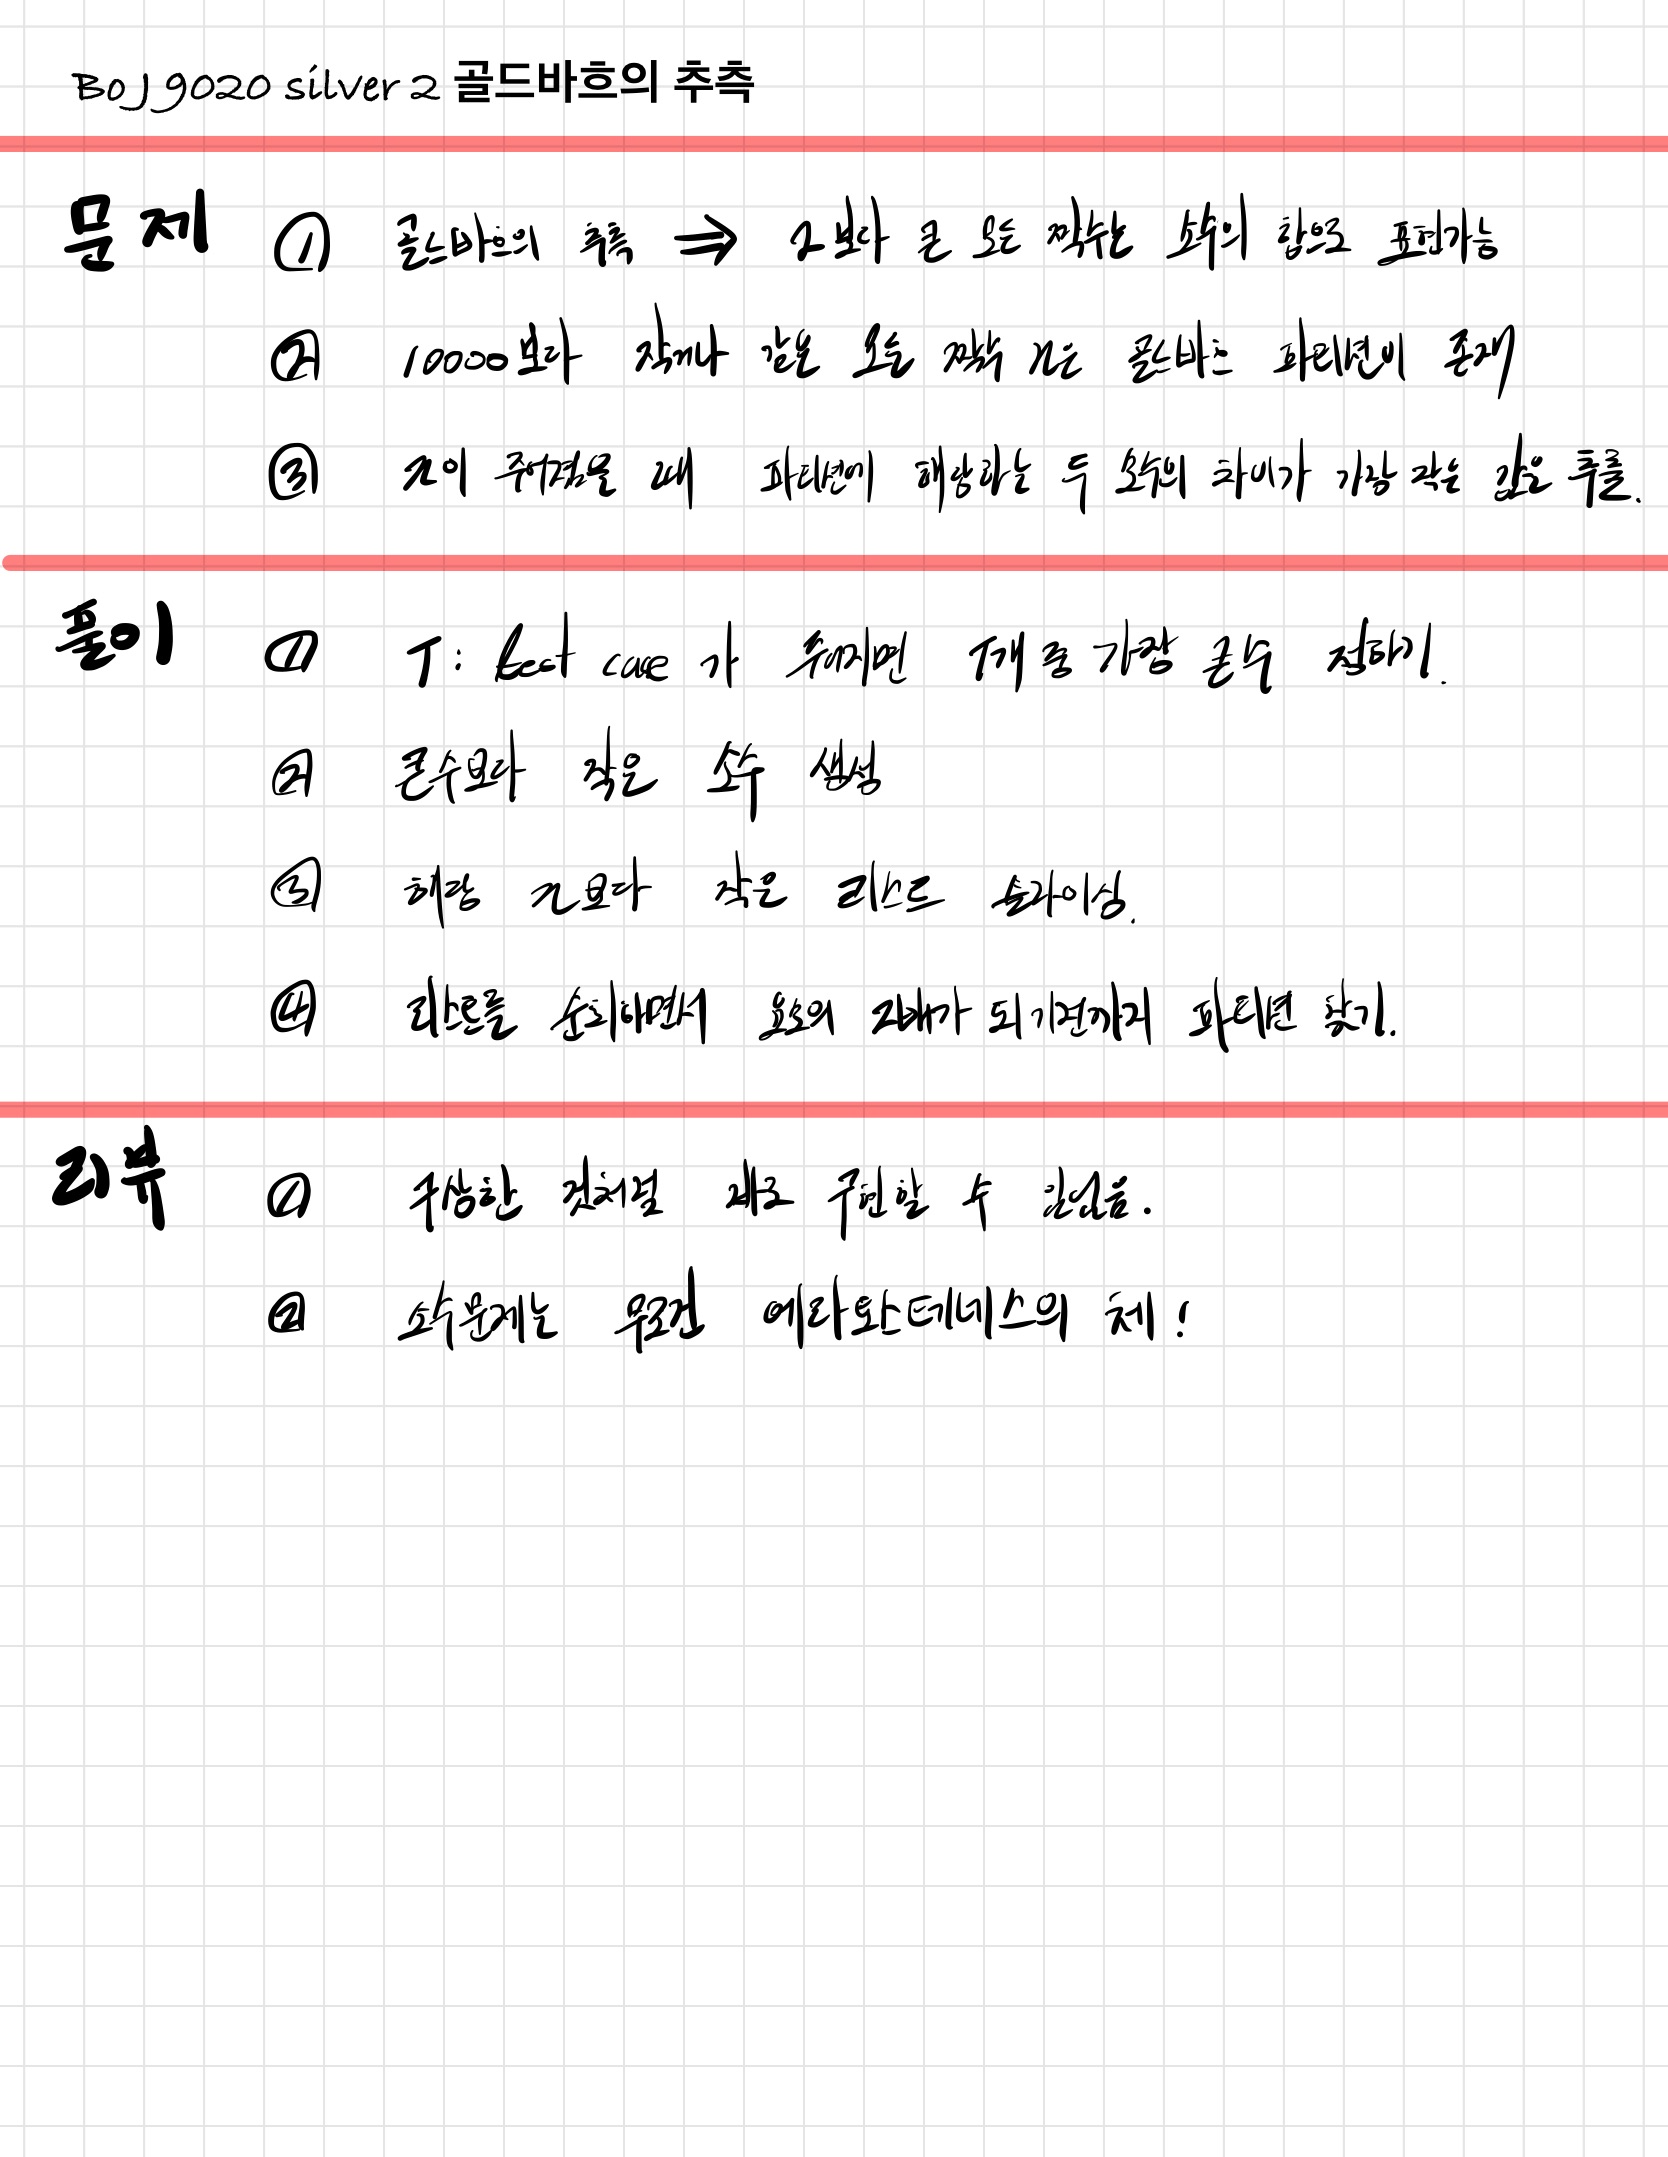 BOJ 9020 silver 2 골드바흐의 추측
문제 ① 골드바흐의 추측 ⇒ 2보다 큰 모든 짝수는 소수의 합으로 표현가능
② 10000보다 작거나 같은 모든 짝수 n은 골드바흐 파티션이 존재
③ n이 주어졌을 때 파티션에 해당하는 두 소수의 차이가 가장 작은 값은 출력.
풀이 ① T: test case가 주어지면 T개 중 가장 큰 수 정하기.
② 큰수보다 작은 소수 생성
③ 해당 n보다 작은 리스트 슬라이싱.
④ 리스트를 순회하면서 요소의 2배가 되기전까지 파티션 찾기.
리뷰 ① 구상한 것처럼 제대로 구현할 수 있었음.
② 소수문제는 무조건 에라토스테네스의 체!